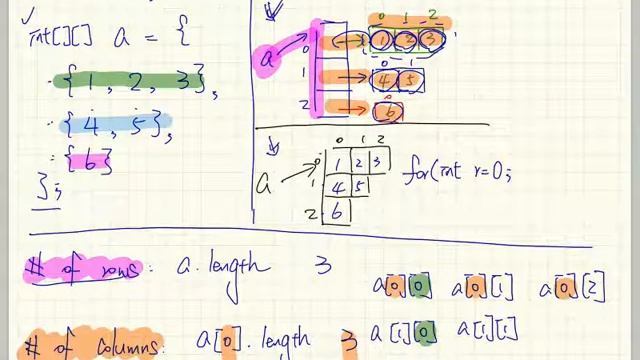 int[][] a = {
{1, 2, 3},
{4, 5},
{6}
};
0 1 2
a
0 1 2 3
0 1
1 4 5
0
2 6
0 1 2
a
0 1 2 3
1 4 5
2 6
for(int r=0;
# of rows: a.length 3
a[0][0] a[0][1] a[0][2]
# of columns: a[0].length 3
a[1][0] a[1][1]